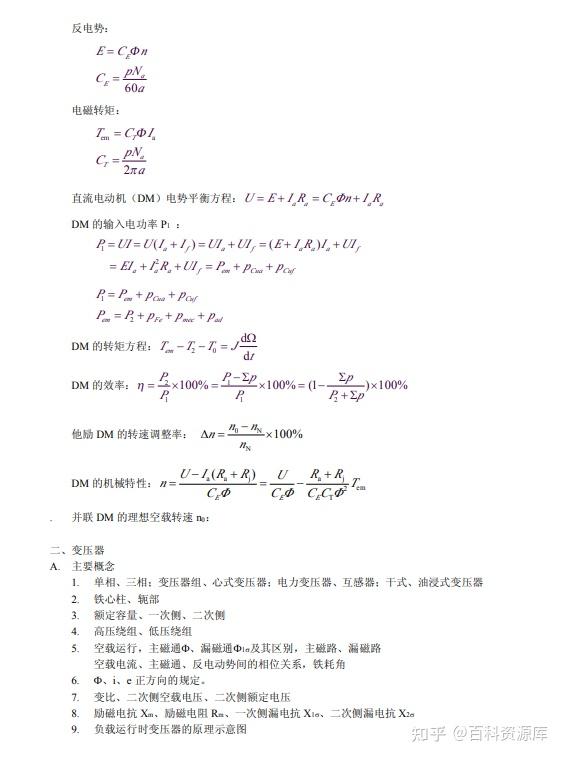 反电势：
E = C_EΦn
C_E = pN_a / 60a
电磁转矩：
T_em = C_TΦI_a
C_T = pN_a / 2πa
直流电动机（DM）电势平衡方程：U = E + I_aR_a = C_EΦn + I_aR_a
DM 的输入电功率 P₁ ：
P₁ = UI = U(I_a + I_f) = UI_a + UI_f = (E + I_aR_a)I_a + UI_f
= EI_a + I_a²R_a + UI_f = P_em + p_Cua + p_Cuf
P₁ = P_em + p_Cua + p_Cuf
P_em = P₂ + p_Fe + p_mec + p_ad
DM 的转矩方程：T_em − T₂ − T₀ = J dΩ/dt
DM 的效率：η = P₂/P₁ ×100% = (P₁ − Σp)/P₁ ×100% = (1 − Σp/(P₂ + Σp))×100%
他励 DM 的转速调整率： Δn = (n₀ − n_N)/n_N ×100%
DM 的机械特性：n = (U − I_a(R_a + R_j))/(C_EΦ) = U/(C_EΦ) − (R_a + R_j)/(C_EC_TΦ²) T_em
. 并联 DM 的理想空载转速 n₀：
二、变压器
A. 主要概念
1. 单相、三相；变压器组、心式变压器；电力变压器、互感器；干式、油浸式变压器
2. 铁心柱、轭部
3. 额定容量、一次侧、二次侧
4. 高压绕组、低压绕组
5. 空载运行，主磁通Φ、漏磁通Φ1σ及其区别，主磁路、漏磁路
空载电流、主磁通、反电动势间的相位关系，铁耗角
6. Φ、i、e 正方向的规定。
7. 变比、二次侧空载电压、二次侧额定电压
8. 励磁电抗 Xm、励磁电阻 Rm、一次侧漏电抗 X1σ、二次侧漏电抗 X2σ
9. 负载运行时变压器的原理示意图
知乎 @百科资源库